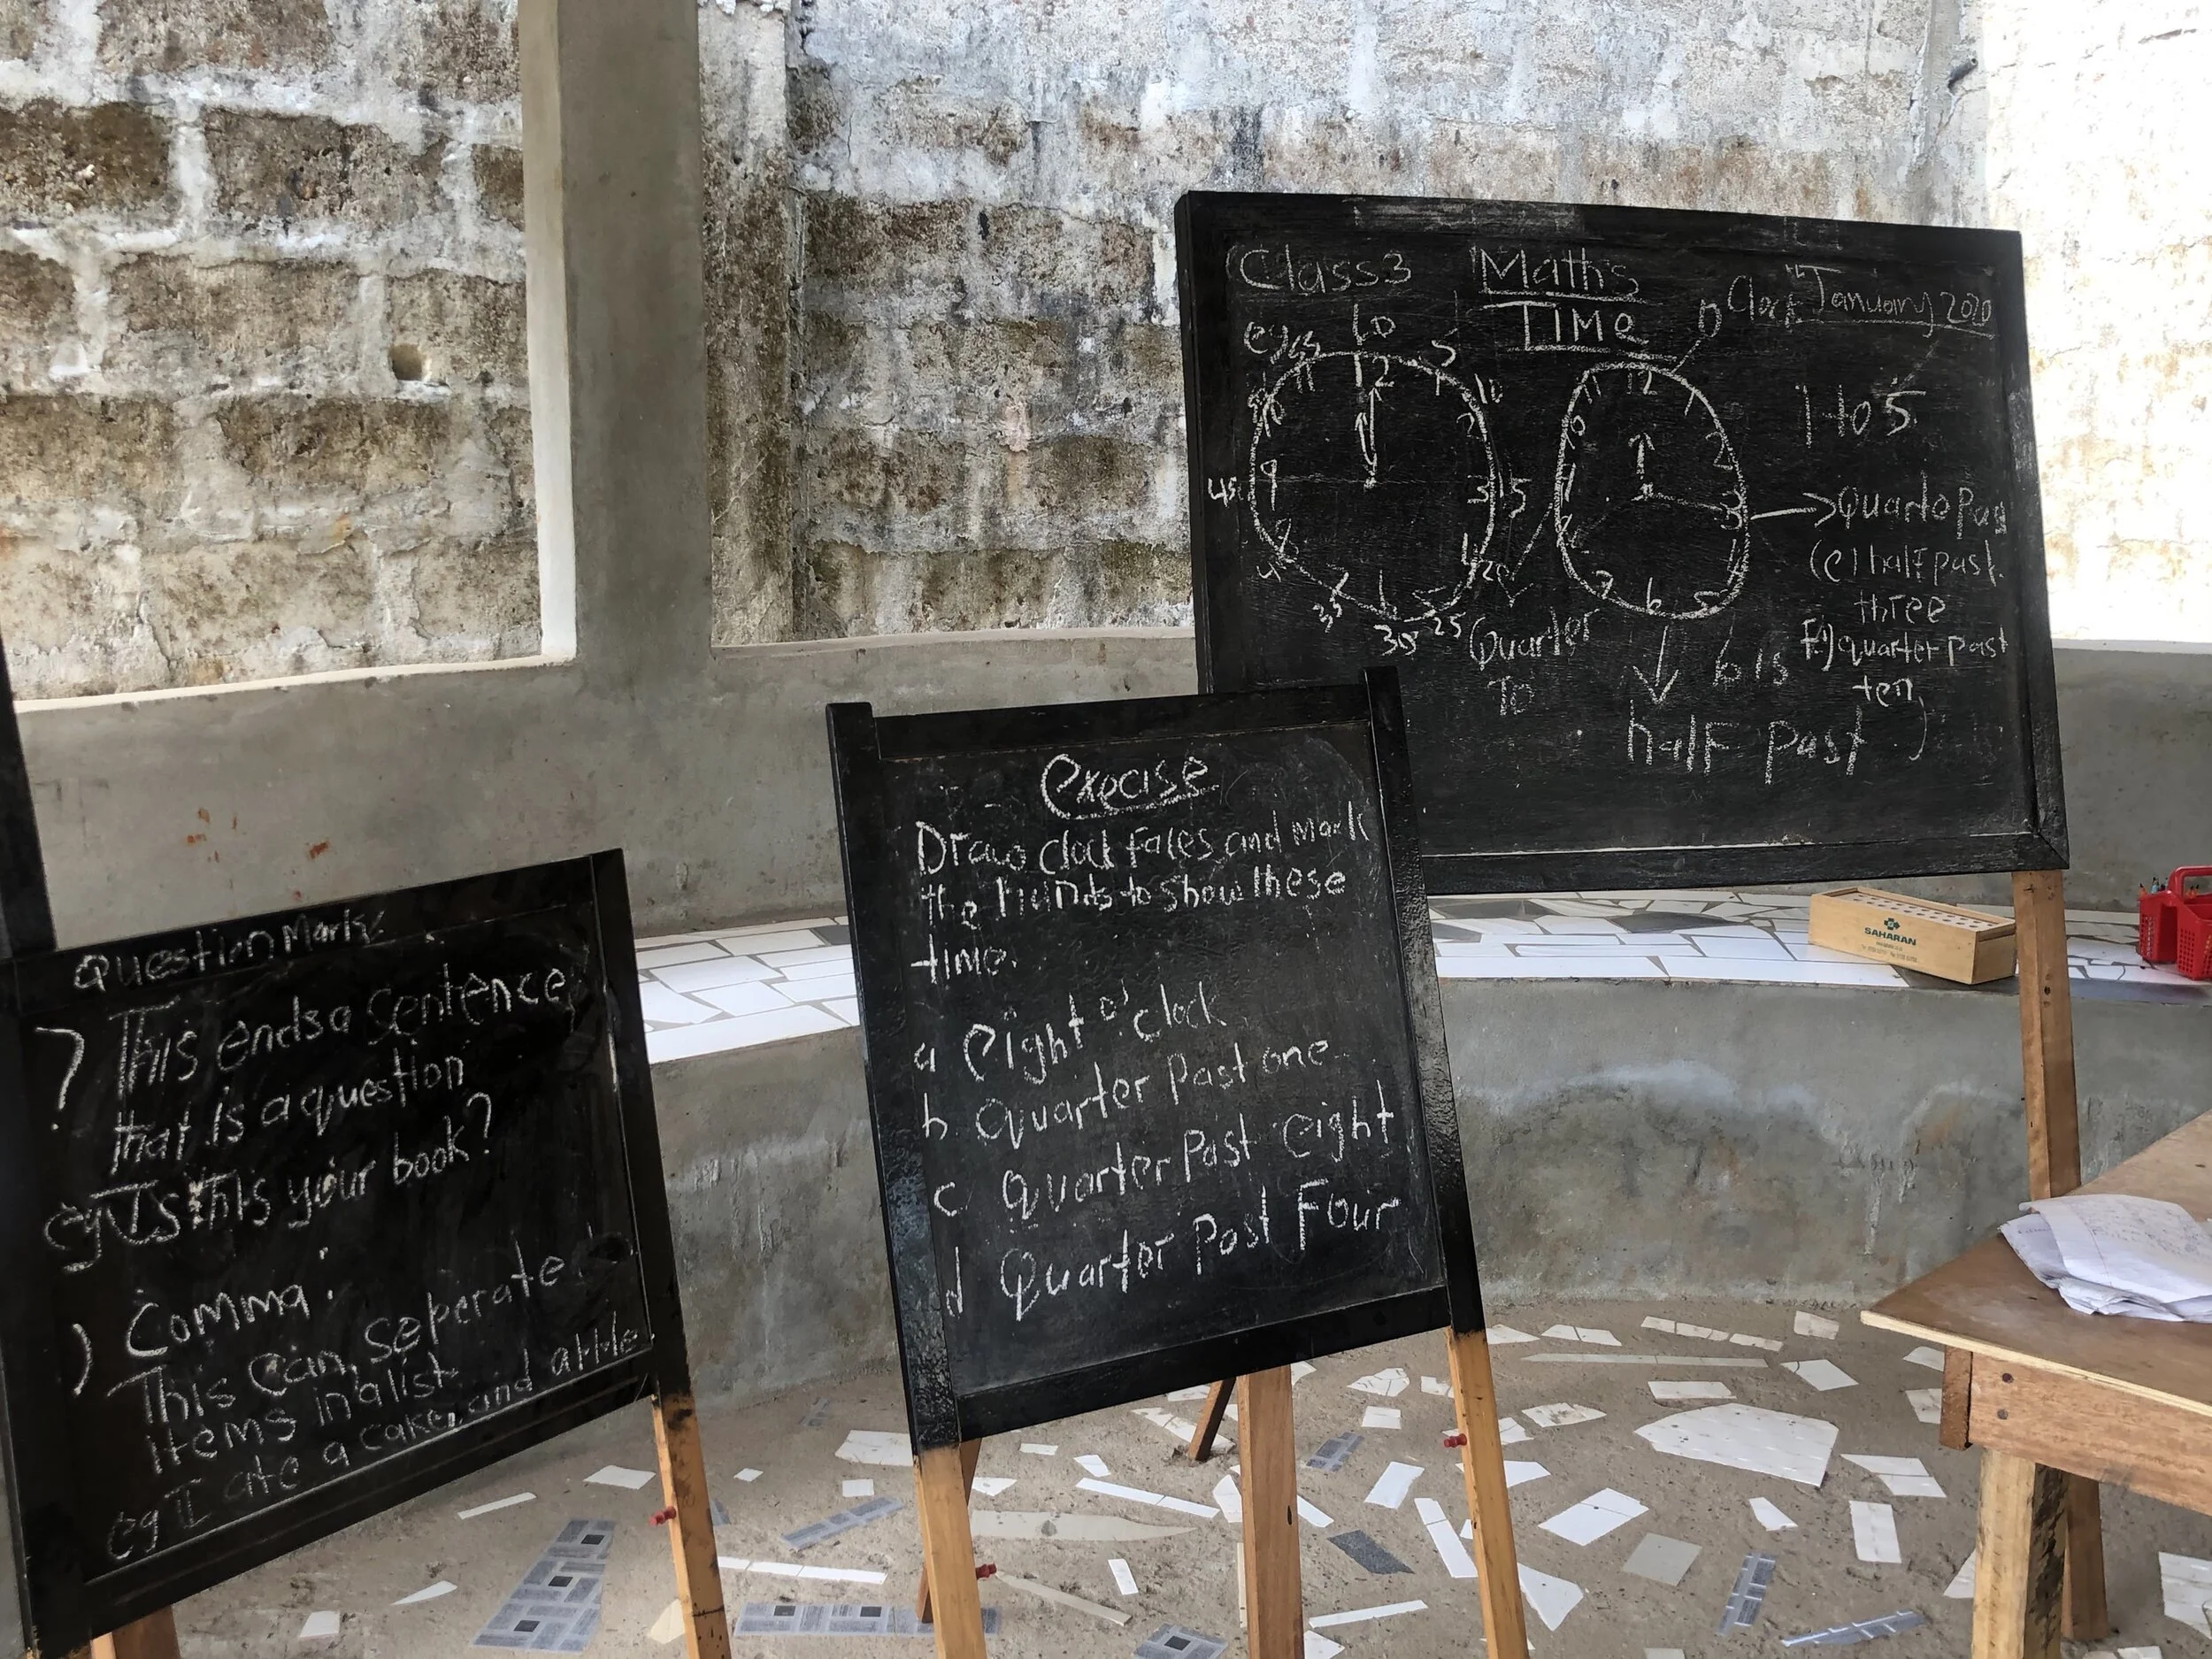 Question Mark:
? This ends a sentence
that is a question
eg Is this your book?
Comma:
) This can seperate
items in a list
eg I ate a cake, and
execise
Draw clock faces and mark
the hands to show these
time.
a eight o'clock
b quarter past one
c quarter past eight
d Quarter past Four
Class 3 Maths
TIME
January 2020
eg
60
5
10
15
20
25
30
35
45
12
1
3
4
6
8
9
11
12
1
2
3
5
6
7
11
O Clock
1 to 5
Quarter
To
(e) half past
three
F.) quarter past
ten
6 is
half past
SAHARAN